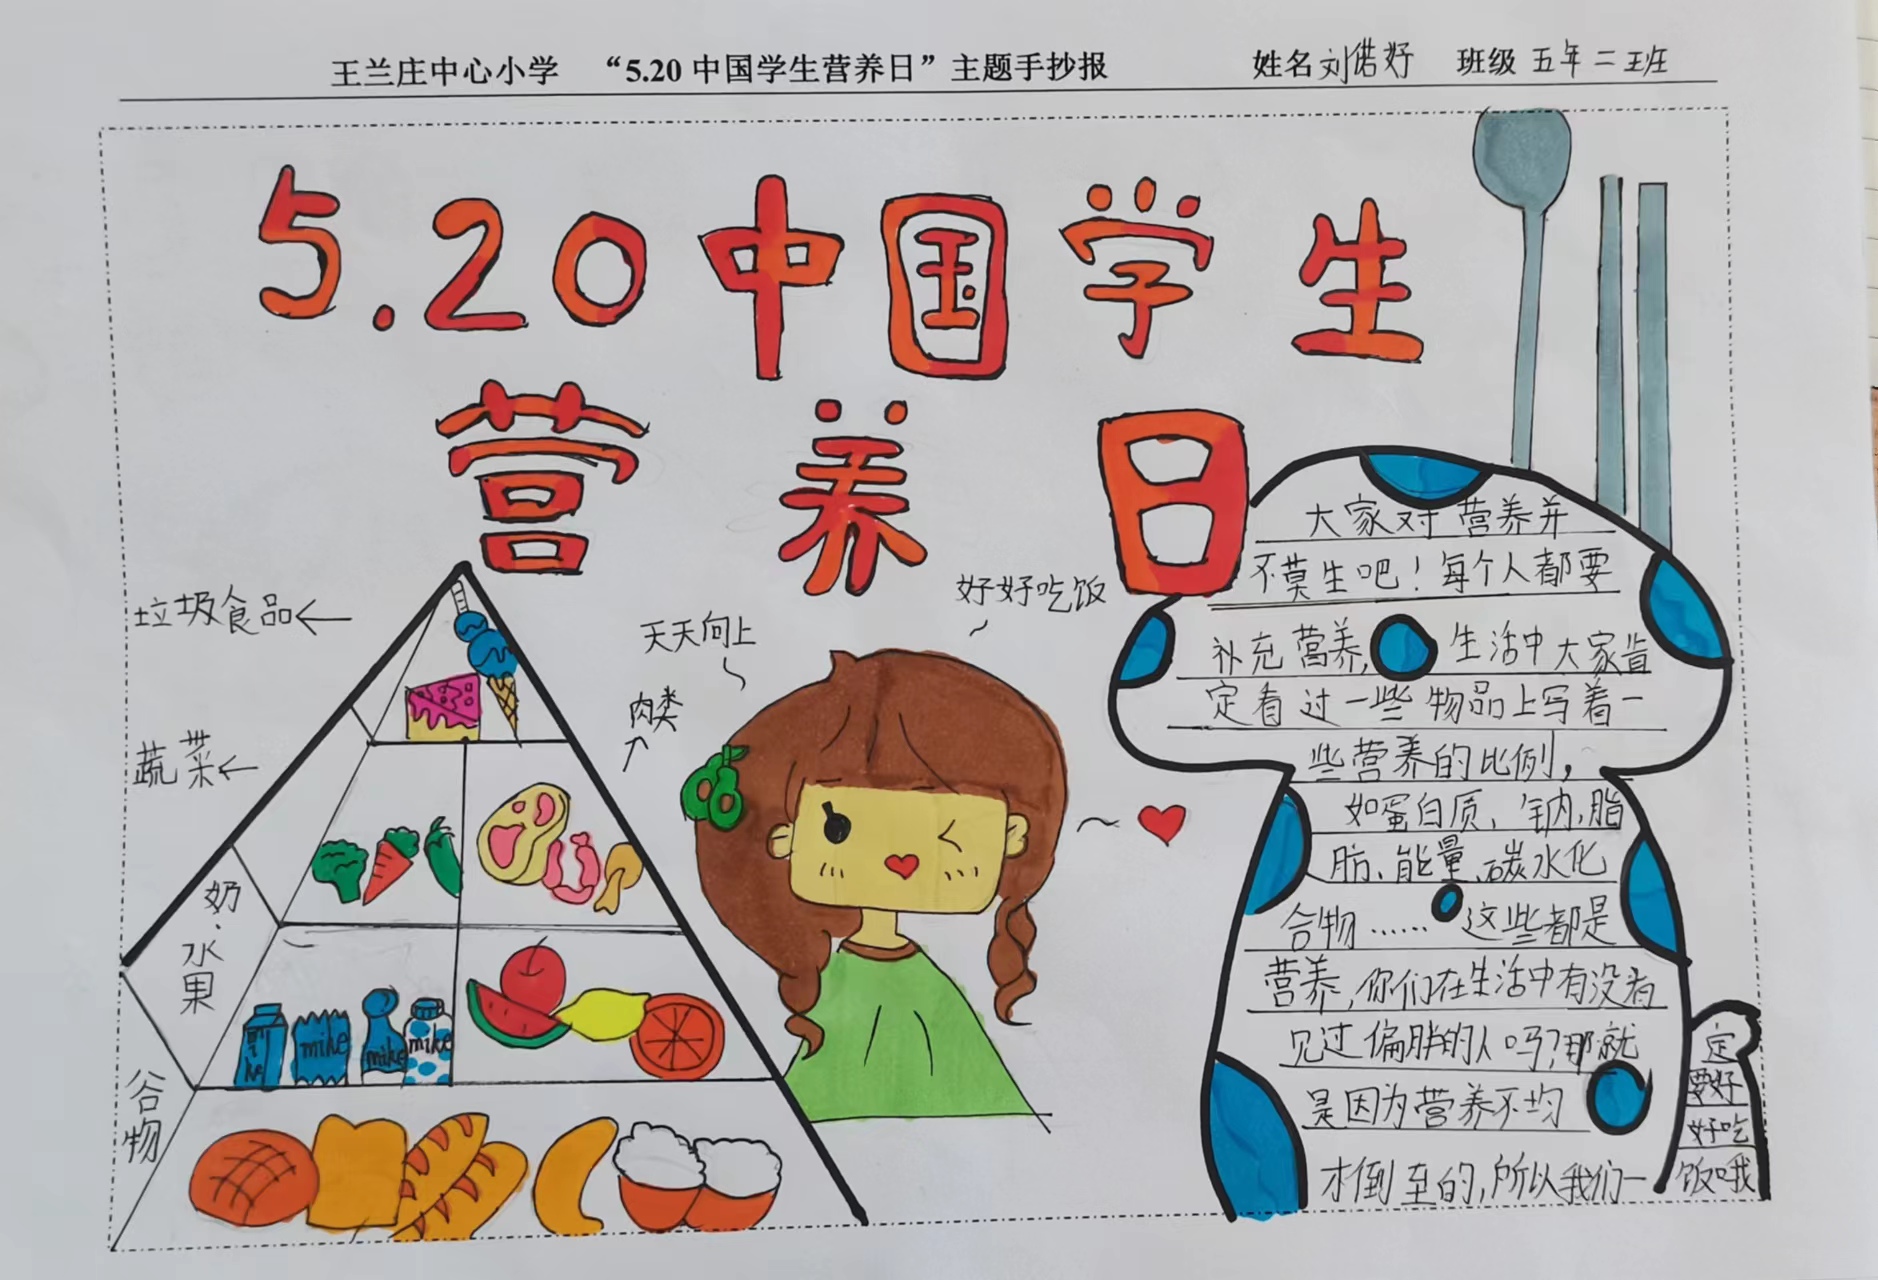 王兰庄中心小学 “5.20 中国学生营养日”主题手抄报 姓名 刘偌妤 班级 五年二班
5.20中国学生
营养日
垃圾食品
蔬菜
奶、水果
谷物
肉类
天天向上
好好吃饭
mike
mike
mike
mike
大家对营养并
不莫生吧！每个人都要
补充营养,生活中大家肯
定看过一些物品上写着一
些营养的比例，
如蛋白质、钠、脂
肪、能量、碳水化
合物……这些都是
营养,你们在生活中有没有
见过偏胖的人吗?那就
是因为营养不均
才倒至的,所以我们一
定
要好
好吃
饭哦